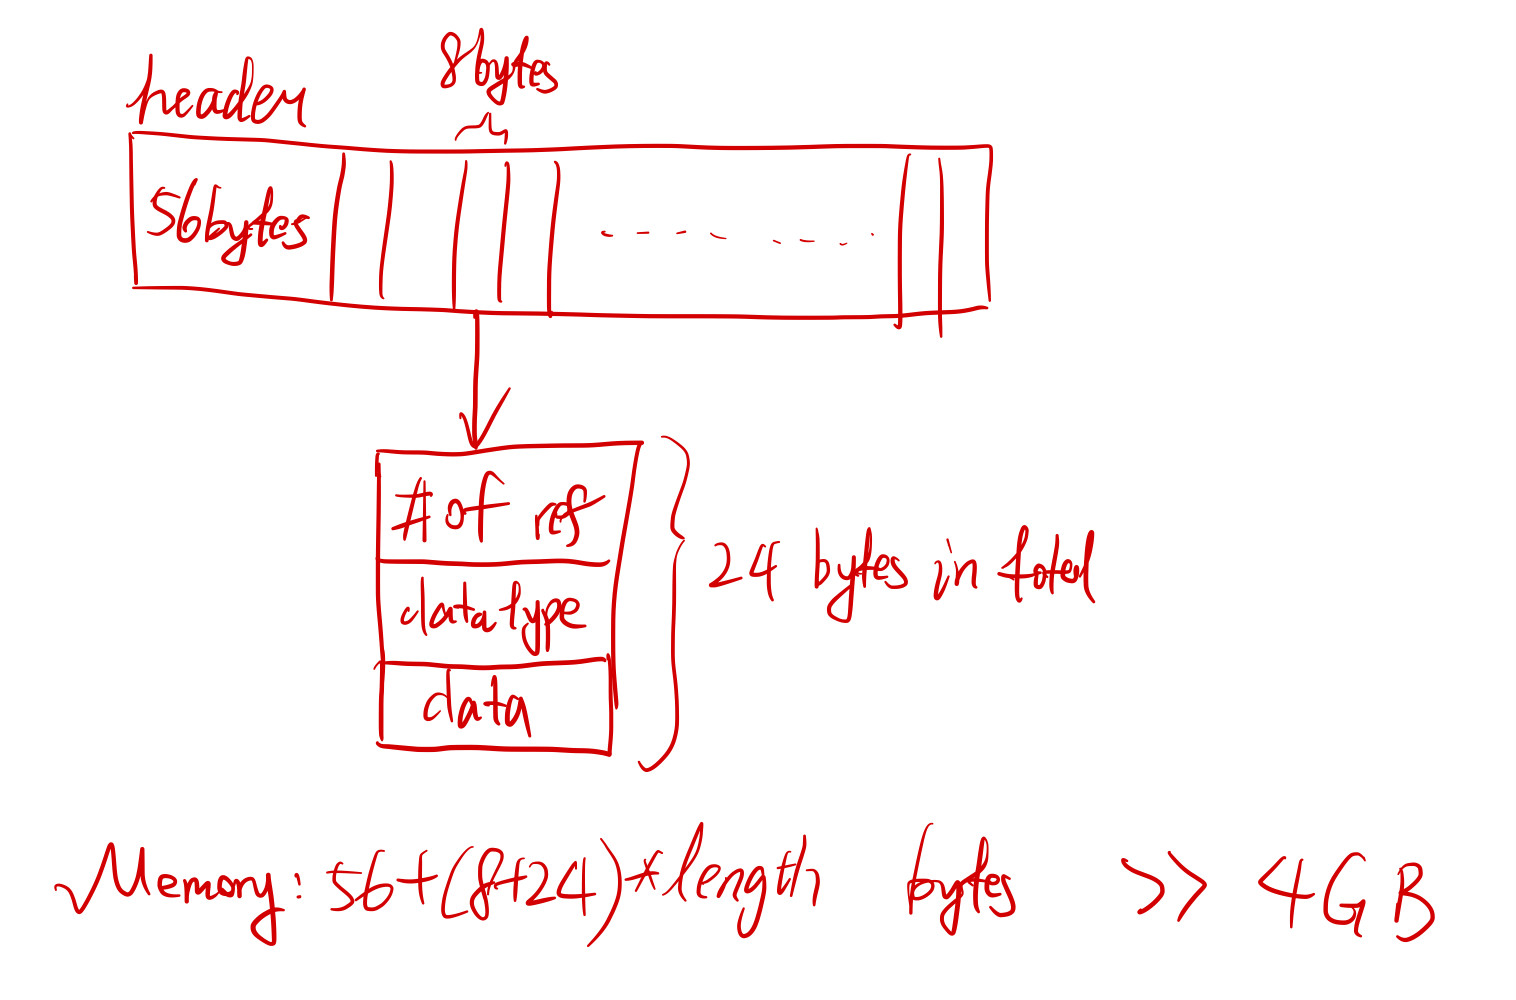 8bytes
header
56bytes
# of ref
datatype
data
24 bytes in total
Memory: 56+(8+24)*length bytes >> 4GB